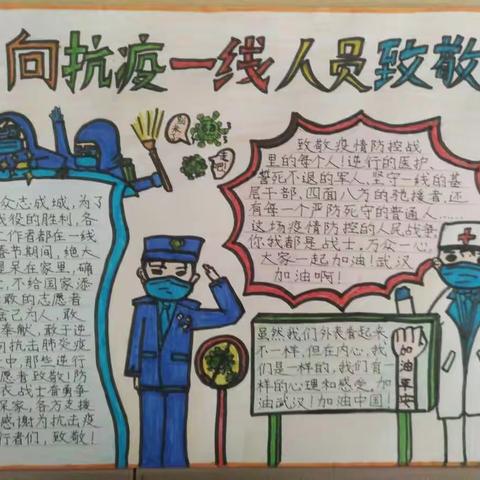 向抗疫一线人员致敬
救命!
走吧!
众志成城,为了
战役的胜利,各
工作者都在一线
春节期间,绝大
是呆在家里,确
,不给国家添
敢的志愿者
舍己为人,敢
奉献,敢于逆
向抗击肺炎疫
中,那些逆行
愿者致敬!防
衣战士奋勇争
保家,各方支援
感谢为抗击疫
行者们,致敬!
致敬疫情防控战
里的每个人!逆行的医护,
誓死不退的军人,坚守一线的基
层干部,四面八方的驰援者,还
有每一个严防死守的普通人……
这场疫情防控的人民战争
你我都是战士。万众一心,
大家一起加油!武汉
加油啊!
虽然我们外表看起来
不一样,但在内心,我
们是一样的,我们有一
样的心理和感受。加
油武汉!加油中国!
加油平安